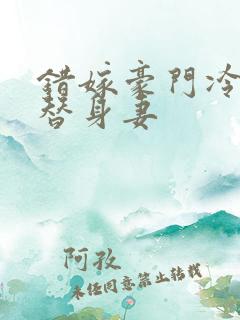 錯嫁豪門冷
替身妻
阿孜
未经同意禁止转载